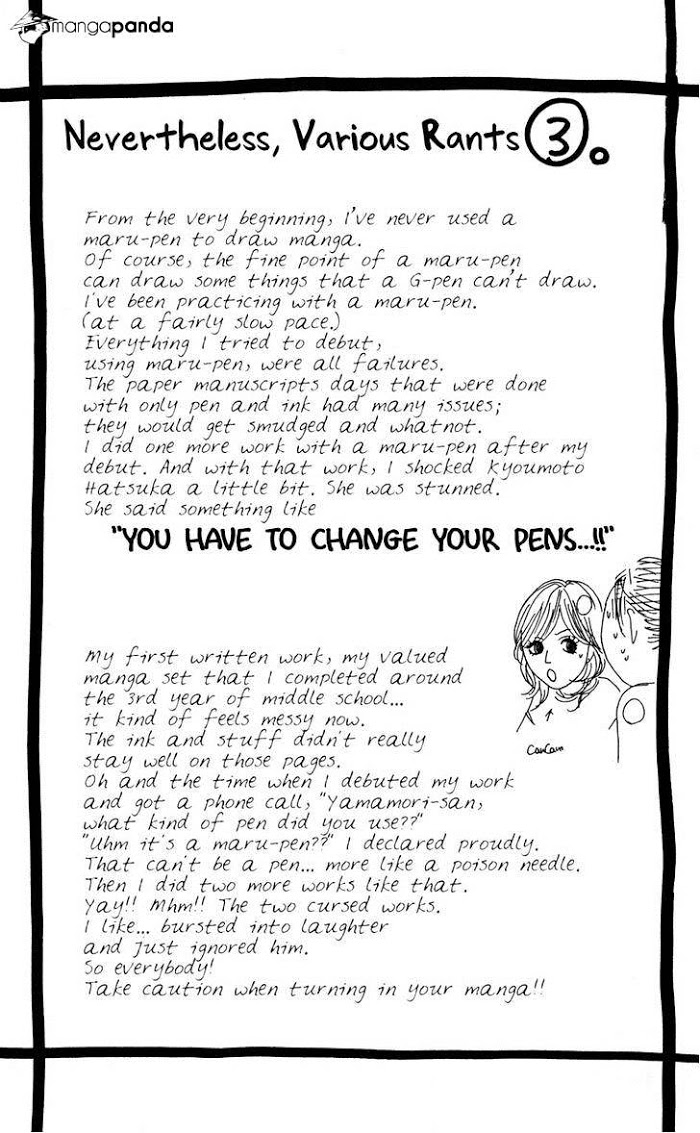 mangapanda
Nevertheless, Various Rants ③.
From the very beginning, I've never used a
maru-pen to draw manga.
Of course, the fine point of a maru-pen
can draw some things that a G-pen can't draw.
I've been practicing with a maru-pen.
(at a fairly slow pace.)
Everything I tried to debut,
using maru-pen, were all failures.
The paper manuscripts days that were done
with only pen and ink had many issues;
they would get smudged and whatnot.
I did one more work with a maru-pen after my
debut. And with that work, I shocked Kyoumoto
Hatsuka a little bit. She was stunned.
She said something like
"YOU HAVE TO CHANGE YOUR PENS...!!"
My first written work, my valued
manga set that I completed around
the 3rd year of middle school...
it kind of feels messy now.
The ink and stuff didn't really
stay well on those pages.
Oh and the time when I debuted my work
and got a phone call, "Yamamori-san,
what kind of pen did you use??"
"Uhm it's a maru-pen??" I declared proudly.
That can't be a pen... more like a poison needle.
Then I did two more works like that.
Yay!! Mhm!! The two cursed works.
I like... bursted into laughter
and just ignored him.
So everybody!
Take caution when turning in your manga!!